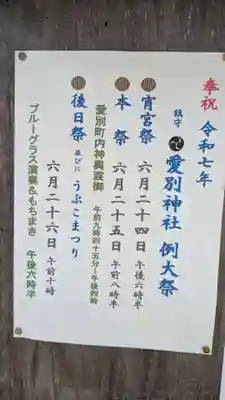 奉祝 令和七年
鎮守 愛別神社 例大祭
宵宮祭 六月二十四日 午後六時
本祭 六月二十五日 午前八時半
愛別町内神輿渡御 午前九時四十五分~午後四時
後日祭 並びに うぶこまつり
六月二十六日 午前十時
ブルーグラス演奏&もちまき 午後六時半